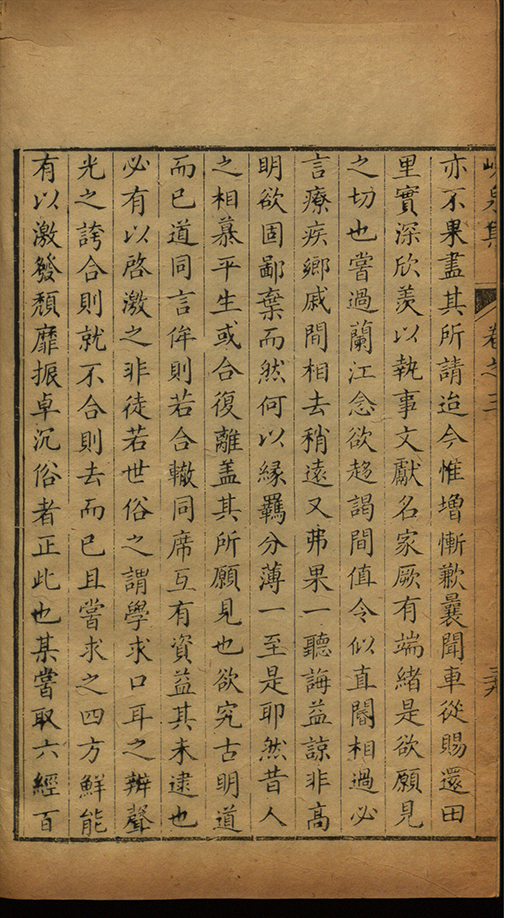 峴泉集
卷之三
亦不果盡其所請迨今惟增慚歉曩聞車從賜還田
里實深欣羨以執事文獻名家厥有端緒是欲願見
之切也嘗過蘭江念欲趍謁間值令似直閣相過必
言療疾鄉戚間相去稍遠又弗果一聽誨益諒非高
明欲固鄙棄而然何以緣羈分薄一至是耶然昔人
之相慕平生或合復離盖其所願見也欲究古明道
而已道同言侔則若合轍同席互有資益其未逮也
必有以啓激之非徒若世俗之謂學求口耳之辨聲
光之誇合則就不合則去而已且嘗求之四方鮮能
有以激發頹靡振卓沉俗者正此也某嘗取六經百